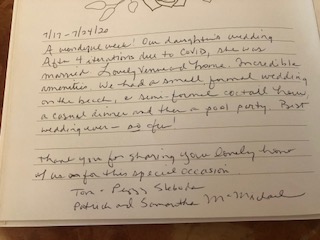 7/17 - 7/24/20
A wonderful week! Our daughter's wedding
After 4 iterations due to Covid, she was
married. Lovely Venue and home. Incredible
amenities. We had a small formal wedding
on the beach, a semi-formal cocktail hour,
a casual dinner and then a pool party. Best
wedding ever - so fun!
Thank you for sharing your lovely home
w/ us for this special occasion.
Tom + Peggy
Patrick and Samantha McMichael